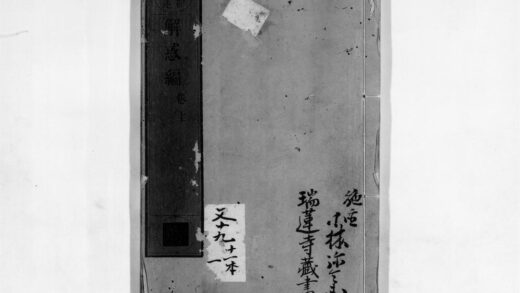 解惑編 卷上
施主 小林
瑞蓮寺藏書
又十九 十一本
一